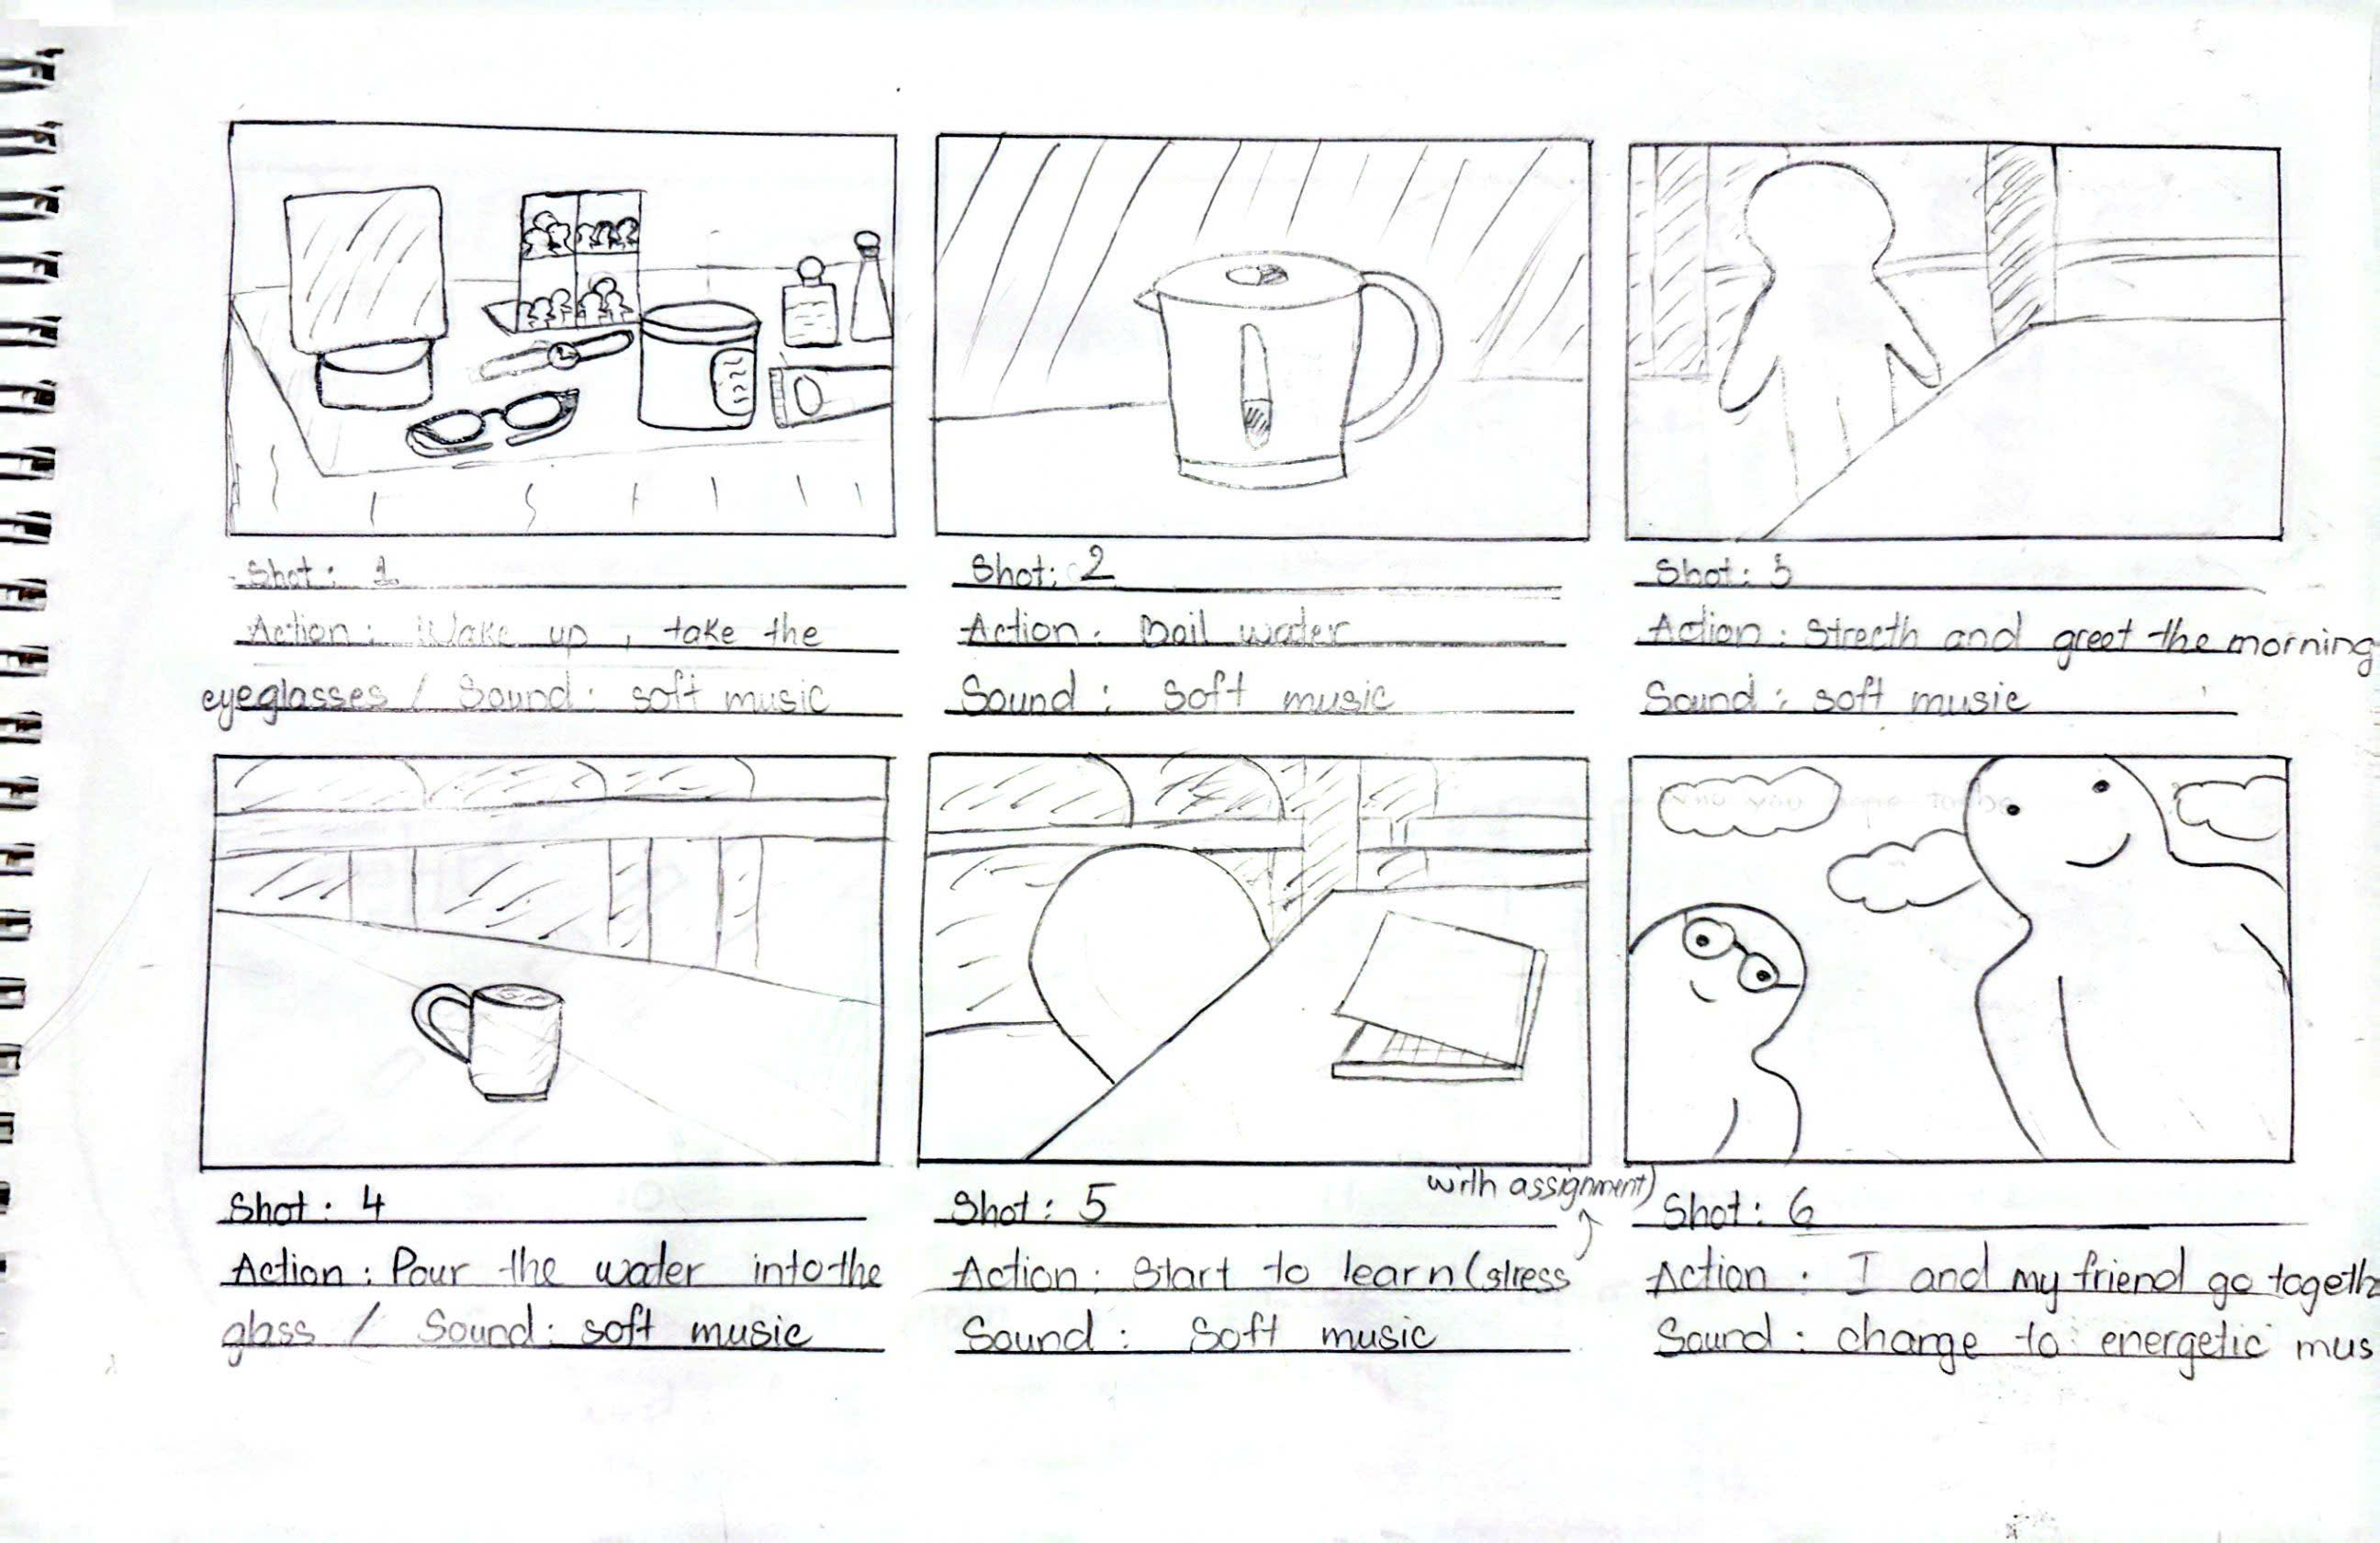 Shot: 1
Action: Wake up, take the
eyeglasses / Sound: soft music
Shot: 2
Action: Boil water
Sound: Soft music
Shot: 3
Action: Strecth and greet the morning
Sound: soft music
Shot: 4
Action: Pour the water into the
glass / Sound: soft music
Shot: 5
Action: Start to learn (stress
with assignment)
Sound: Soft music
Shot: 6
Action: I and my friend go togeth
Sound: change to energetic mus